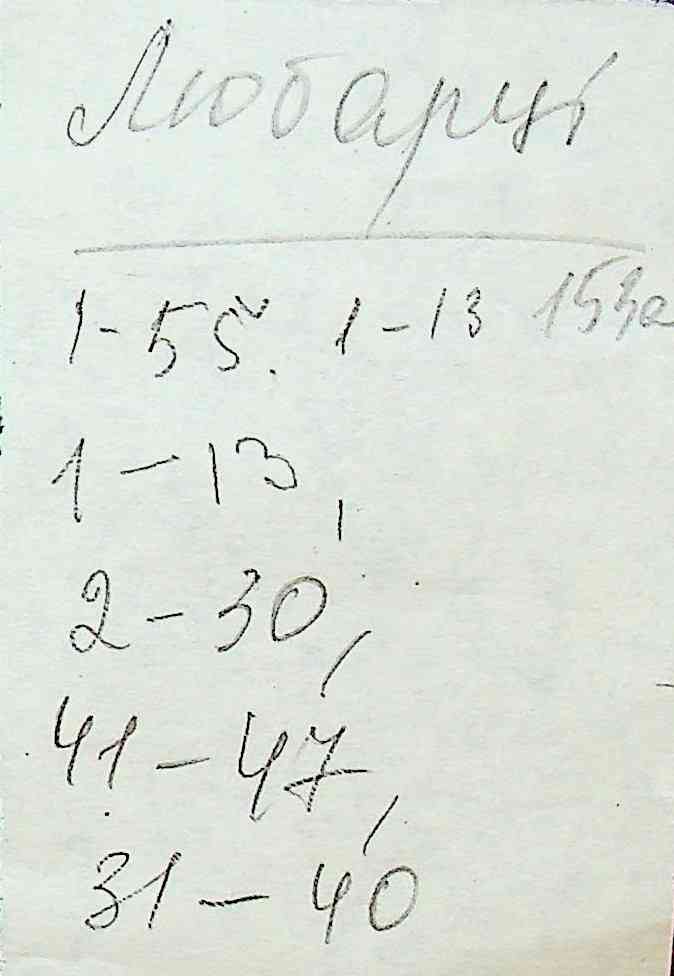 Любарці
1-55. 1-13 153а
1-13,
2-30,
41-47,
31-40